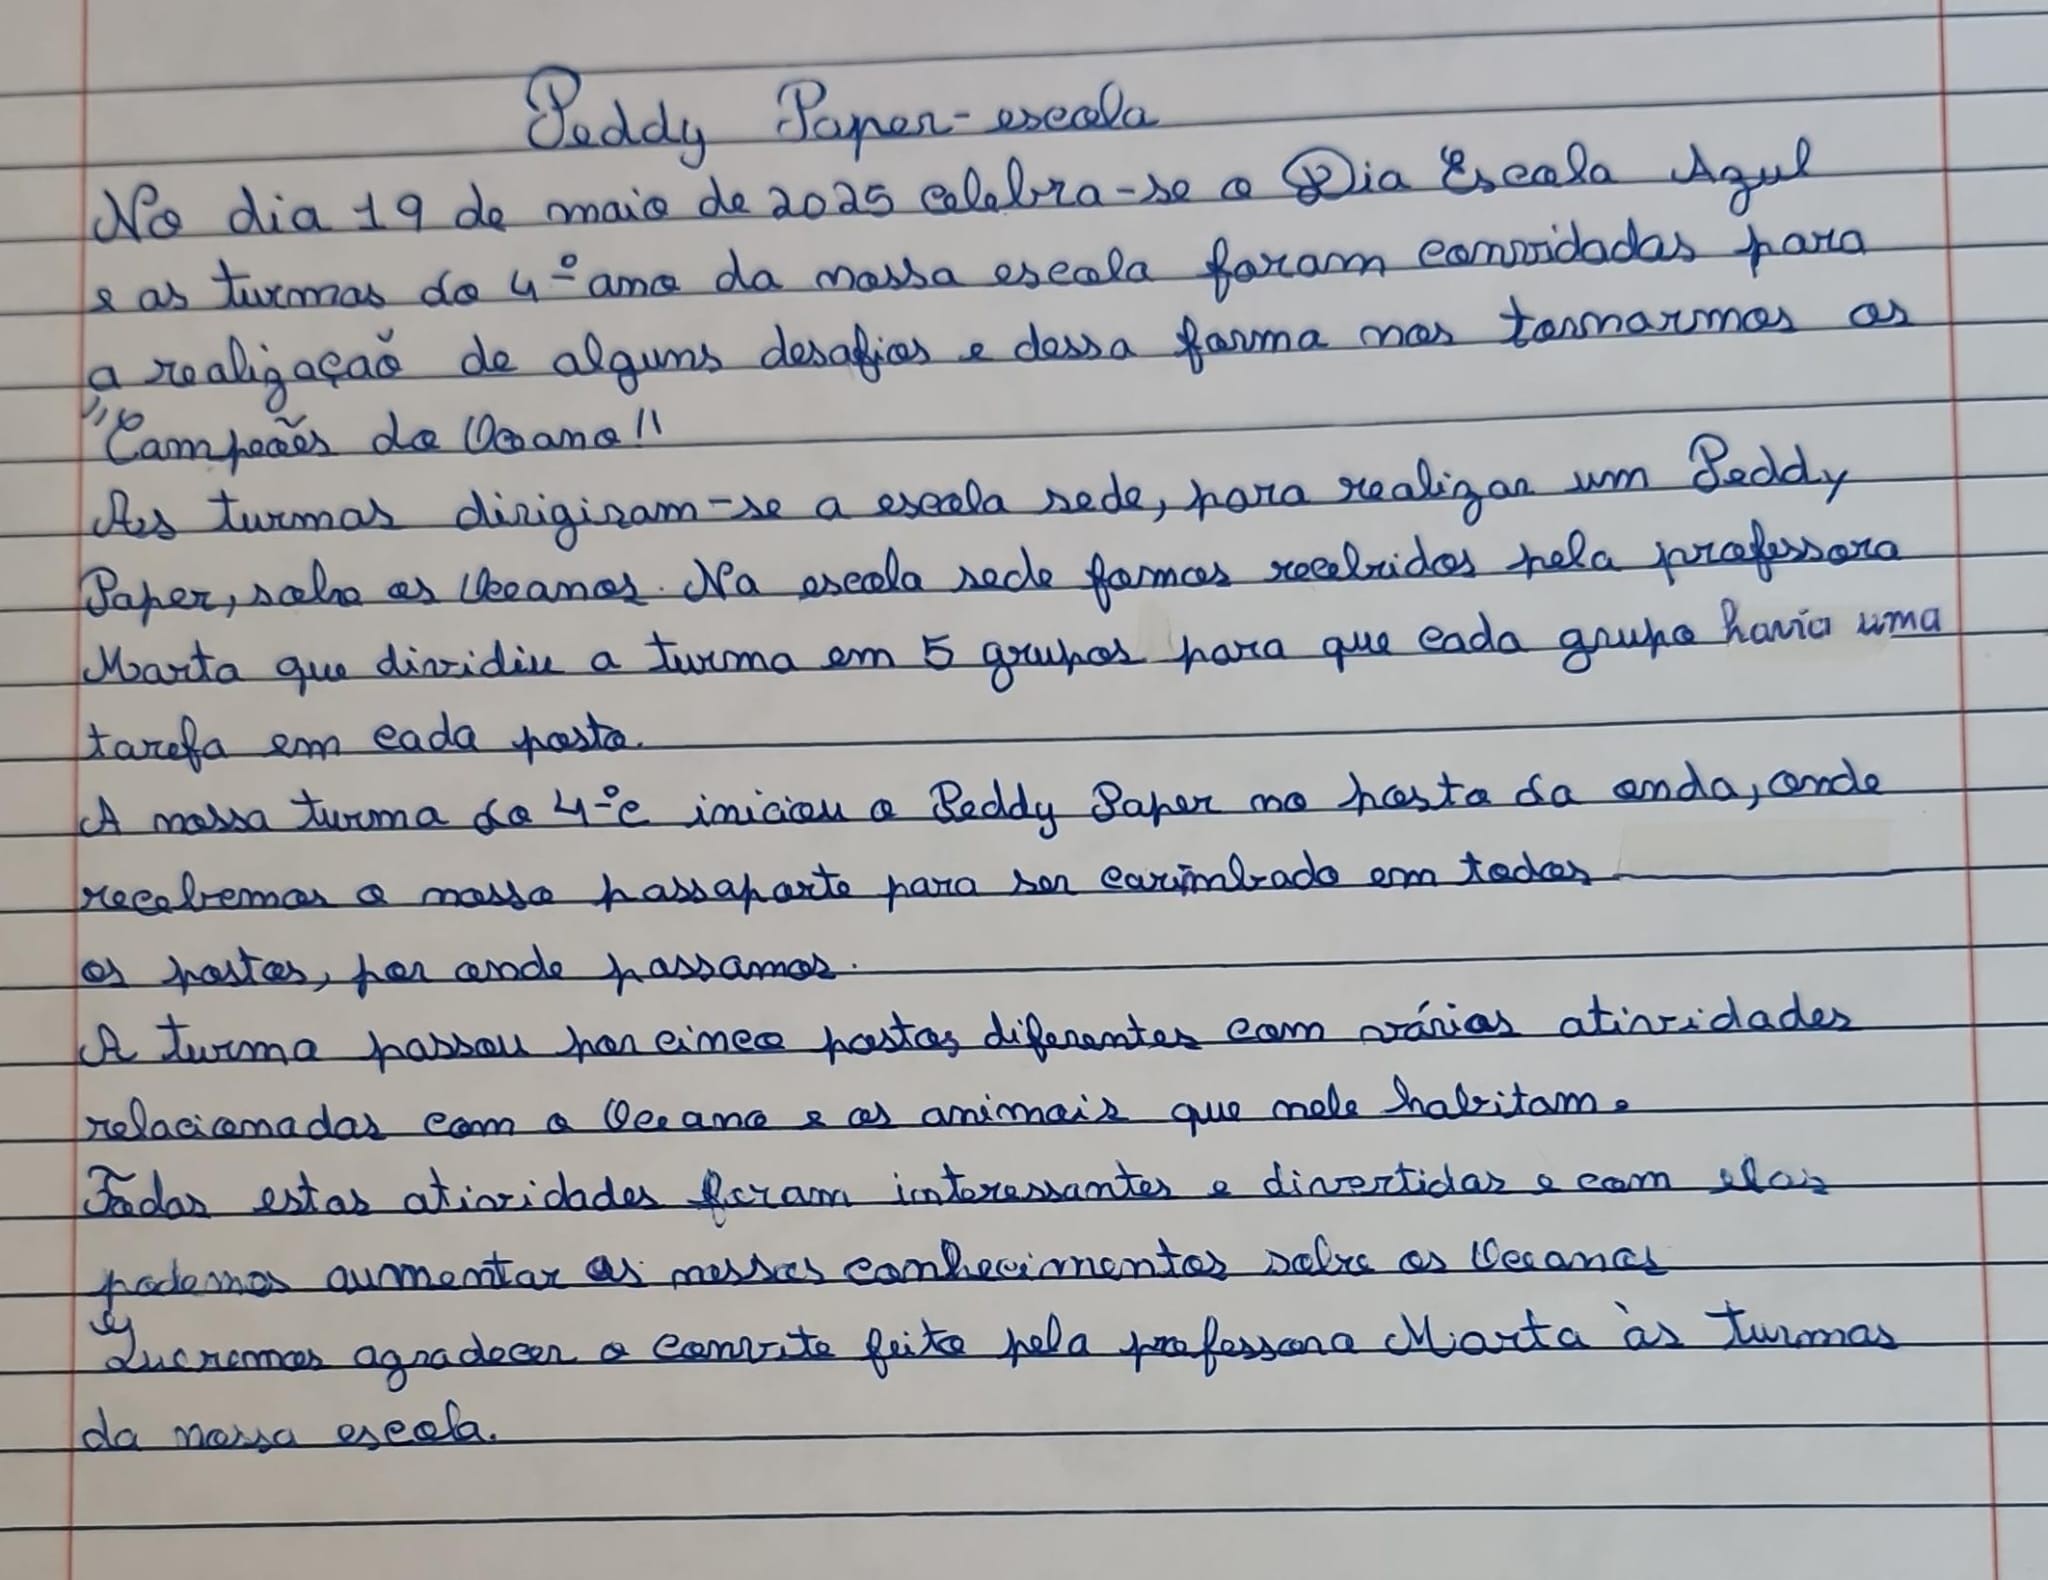 Peddy Paper-escola
No dia 19 de maio de 2025 celebra-se o Dia Escola Azul
e as turmas do 4.º ano da nossa escola foram convidadas para
a realização de alguns desafios e dessa forma nos tornarmos os
"Campeões do Oceano"
As turmas dirigiram-se a escola sede, para realizar um Peddy
Paper, sobre os Oceanos. Na escola sede fomos recebidos pela professora
Marta que dividiu a turma em 5 grupos para que cada grupo havia uma
tarefa em cada posto.
A nossa turma do 4.ºC iniciou o Peddy Paper no posto da onda, onde
recebemos o nosso passaporte para ser carimbado em todos
os postos, por onde passamos.
A turma passou por cinco postos diferentes com várias atividades
relacionadas com o Oceano e os animais que nele habitam.
Todas estas atividades foram interessantes e divertidas e com elas
podemos aumentar os nossos conhecimentos sobre os Oceanos
Queremos agradecer o convite feito pela professora Marta às turmas
da nossa escola.